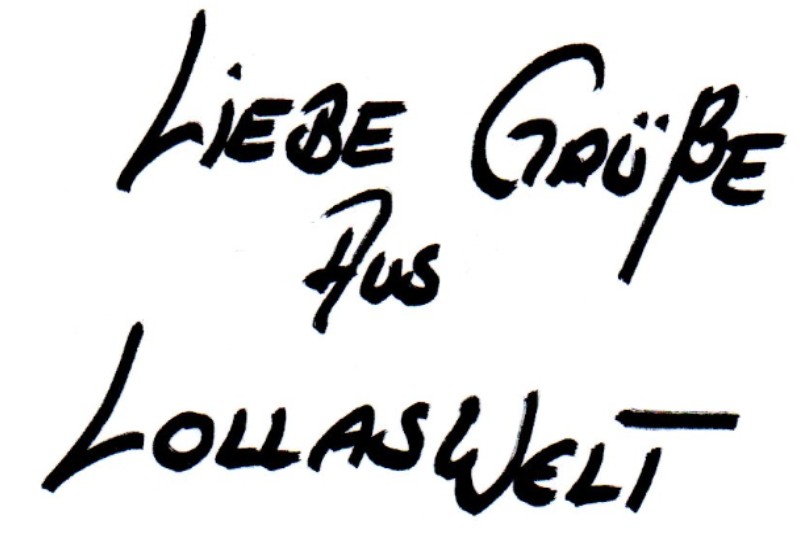 Liebe Grüße
Aus
LollasWelt